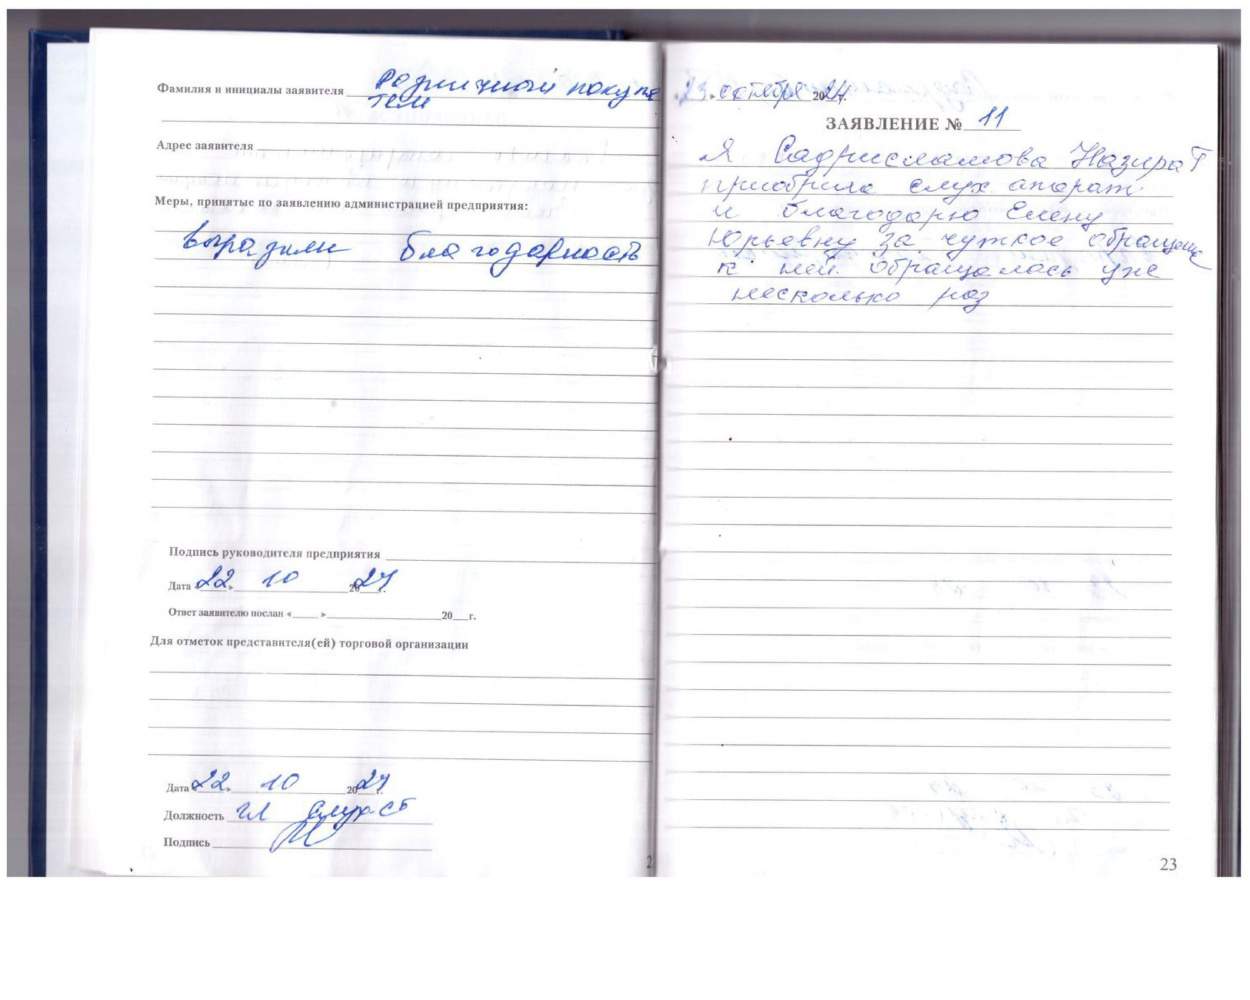 Фамилия и инициалы заявителя розничный покупа
тели
Адрес заявителя
Меры, принятые по заявлению администрацией предприятия:
выразили благодарность
Подпись руководителя предприятия
Дата «22» 10 2024 г.
Ответ заявителю послан « » 20 г.
Для отметок представителя(ей) торговой организации
Дата «22» 10 2024 г.
Должность гл
Подпись
2
23 октября 2024 г.
ЗАЯВЛЕНИЕ № 11
Я Садрисламова Назира Т
приобрила слух апарат
и благодарю Елену
Юрьевну за чуткое обращение
к ней обращалась уже
несколько раз
23